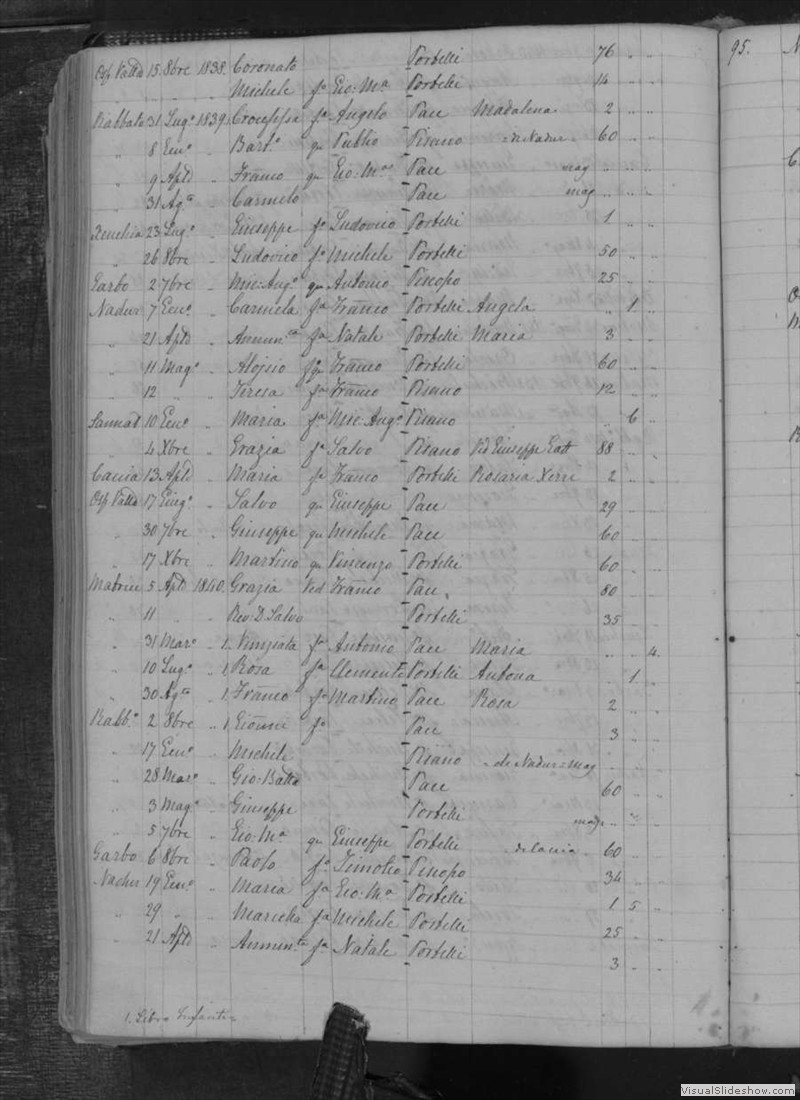 Osp Vallta 15 8bre 1838. Coronato Portelli 76 „ „
„ „ „ Michele fo Gio: Ma Portelli 14 „ „
Rabbato 31 Lugo 1839. Crocefissa fa Angelo Pace Madalena 2 „ „
„ 8 Geno „ Barto qu Publio Pisano di Nadur 60 „ „
„ 9 Aple „ Franco qu Gio: Ma Pace mag „ „
„ 31 Agto „ Carmelo Pace mag „ „
Xeuchia 23 Lugo „ Giuseppe fo Ludovico Portelli 1 „ „
„ 26 8bre „ Ludovico fo Michele Portelli 50 „ „
Garbo 2 7bre „ Mic: Ango qu Antonio Piscopo 25 „ „
Nadur 7 Geno „ Carmela fa Franco Portelli Angela „ 1 „
„ 21 Aple „ Annunta fa Natale Portelli Maria 3 „ „
„ 11 Mago „ Aloisio qu Franco Portelli 60 „ „
„ 12 „ „ Teresa fa Franco Pisano 12 „ „
Sannat 10 Geno „ Maria fa Mic: Ango Pisano „ 6 „
„ 4 Xbre „ Grazia fa Salvo Pisano Vid Giuseppe Gatt 88 „ „
Cacia 13 Aple „ Maria fa Franco Portelli Rosaria Xerri 2 „ „
Osp Vallta 17 Giugo „ Salvo qu Giuseppe Pace 29 „ „
„ 30 7bre „ Giuseppe qu Michele Pace 60 „ „
„ 17 Xbre „ Martino qu Vincenzo Portelli 60 „ „
Matrice 5 Aple 1840. Grazia Ved Franco Pace 80 „ „
„ 11 „ „ Rev: D. Salvo Portelli 35 „ „
„ 31 Maro „ 1. Nunziata fa Antonio Pace Maria „ „ 4
„ 10 Lugo „ 1. Rosa fa Clemente Portelli Antona „ 1 „
„ 30 Agto „ 1. Franco fo Martino Pace Rosa 2 „ „
Rabbo 2 8bre „ 1. Gionni fo Pace 3 „ „
„ 17 Geno „ Michele Pisano di Nadur = mag „ „
„ 28 Maro „ Gio: Batta Pace 60 „ „
„ 3 Mago „ Giuseppe Portelli mag „ „
„ 5 7bre „ Gio: Ma qu Giuseppe Portelli 60 „ „
Garbo 6 8bre „ Paolo fo Timoteo Piscopo 34 „ „
Nadur 19 Geno „ Maria fa Gio: Ma Portelli 1 5 „
„ 29 „ „ Mariella fa Michele Portelli 25 „ „
„ 21 Aple „ Annunta fa Natale Portelli 3 „ „
1. Libro Infantia
95.
VisualSlideshow.com